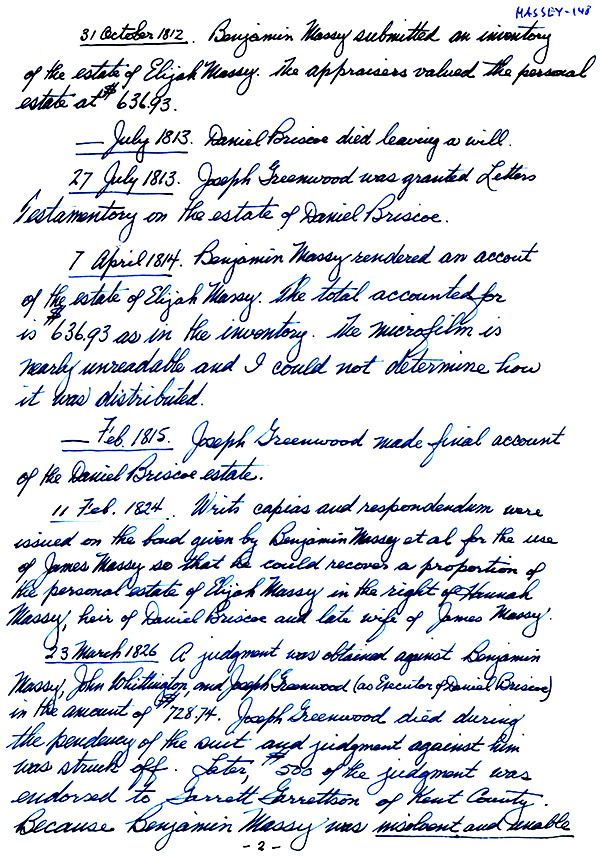 MASSEY-148
31 October 1812. Benjamin Massy submitted an inventory
of the estate of Elijah Massy. The appraisers valued the personal
estate at $636.93.
— July 1813. Daniel Briscoe died leaving a will.
27 July 1813. Joseph Greenwood was granted Letters
Testamentory on the estate of Daniel Briscoe.
7 April 1814. Benjamin Massy rendered an accout
of the estate of Elijah Massy. The total accounted for
is $636.93 as in the inventory. The microfilm is
nearly unreadable and I could not determine how
it was distributed.
— Feb. 1815. Joseph Greenwood made final account
of the Daniel Briscoe estate.
11 Feb. 1824. Writs capias and respondendum were
issued on the bond given by Benjamin Massey et al for the use
of James Massy so that he could recover a proportion of
the personal estate of Elijah Massy in the right of Hannah
Massy, heir of Daniel Briscoe and late wife of James Massy.
23 March 1826 A judgment was obtained against Benjamin
Massy, John Whittington, and Joseph Greenwood (as Executor of Daniel Briscoe)
in the amount of $728.74. Joseph Greenwood died during
the pendency of the suit and judgment against him
was struck off. Later, $500 of the judgment was
endorsed to Garrett Garrettson of Kent County.
Because Benjamin Massy was insolvent and unable
- 2 -